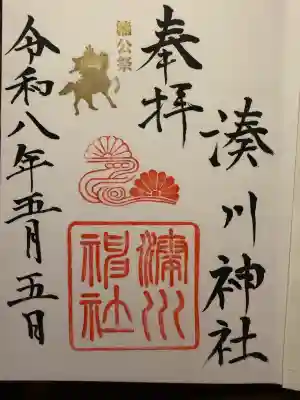 奉拝
湊川神社
楠公祭
令和八年五月五日
湊川神社